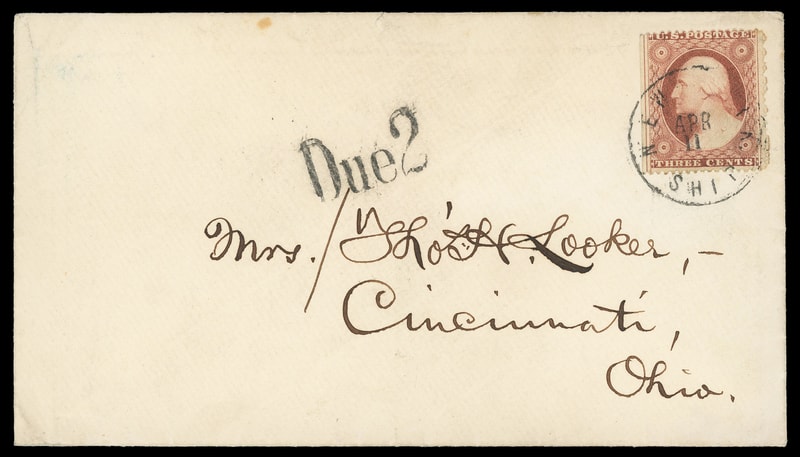 U.S. POSTAGE
THREE CENTS
NEW
SHIP
APR
11
Due 2
Mrs. Tho's H. Looker, –
Cincinnati,
Ohio.